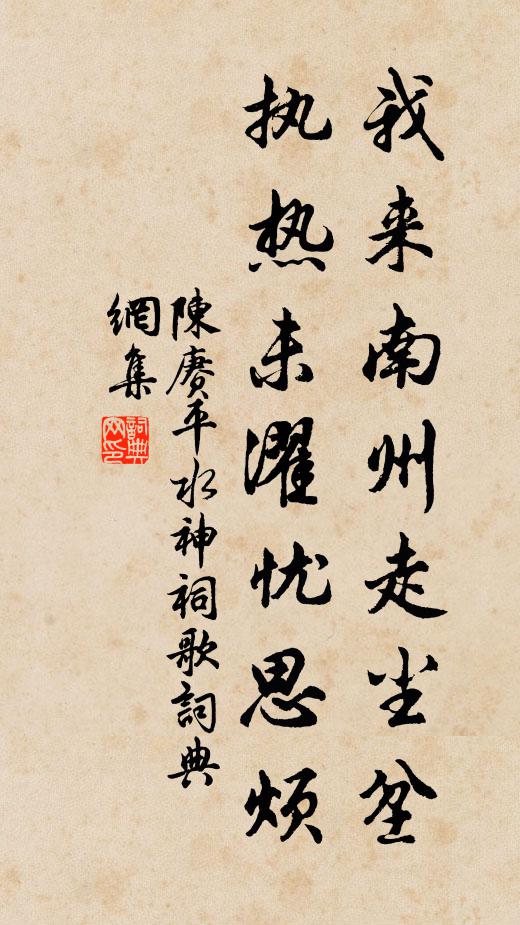 我来南州走尘坌
执热未濯忧思烦
陳賡平水神祠歌詞典
網集
詞典網印